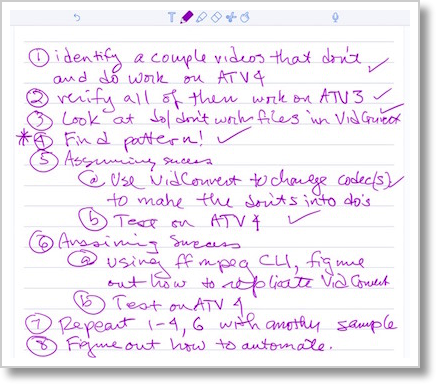 ① identify a couple videos that don't
and do work on ATV4 ✓
② verify all of them work on ATV3 ✓
③ Look at do/don't work files in VidConvert
*④ Find pattern! ✓
⑤ Assuming success
ⓐ Use VidConvert to change codec(s) ✓
to make the don'ts into do's
ⓑ Test on ATV 4 ✓
⑥ Assuming Success
ⓐ using ffmpeg CLI, figure
out how to replicate VidConvert
ⓑ Test on ATV 4
⑦ Repeat 1-4, 6 with another sample
⑧ Figure out how to automate.